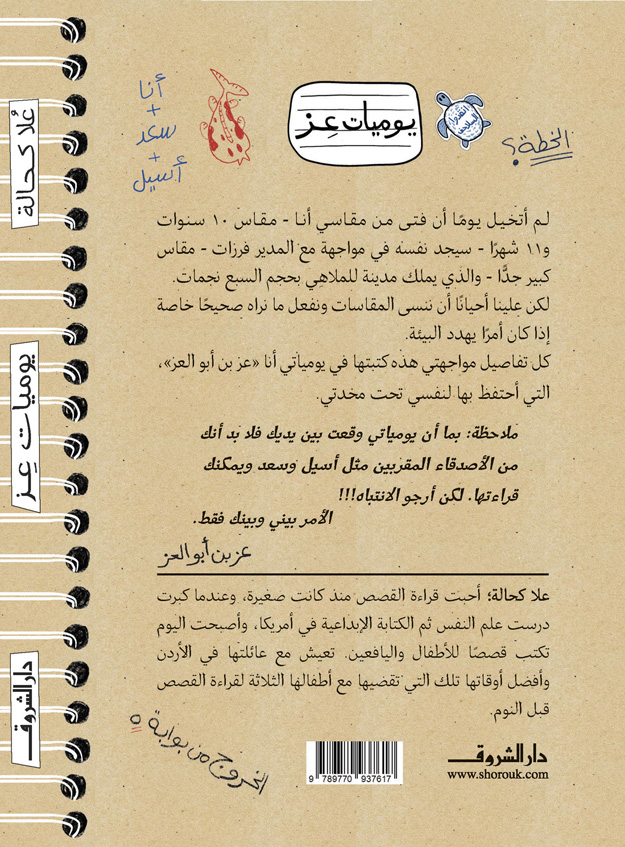 عُلا كحالة
يوميات عِز
دار الشروق
أنا
+
سعد
+
أسيل
يوميات عِز
أنقذوا
السلاحف
الخطة؟
لم أتخيل يومًا أن فتى من مقاسي أنا - مقاس ١٠ سنوات
و١١ شهرًا - سيجد نفسه في مواجهة مع المدير فرزات - مقاس
كبير جدًّا - والذي يملك مدينة للملاهي بحجم السبع نجمات.
لكن علينا أحيانًا أن ننسى المقاسات ونفعل ما نراه صحيحًا خاصة
إذا كان أمرًا يهدد البيئة.
كل تفاصيل مواجهتي هذه كتبتها في يومياتي أنا «عز بن أبو العز»،
التي أحتفظ بها لنفسي تحت مخدتي.
ملاحظة: بما أن يومياتي وقعت بين يديك فلا بد أنك
من الأصدقاء المقربين مثل أسيل وسعد ويمكنك
قراءتها. لكن أرجو الانتباه!!!
الأمر بيني وبينك فقط.
عز بن أبو العز
علا كحالة؛ أحبت قراءة القصص منذ كانت صغيرة، وعندما كبرت
درست علم النفس ثم الكتابة الإبداعية في أمريكا، وأصبحت اليوم
تكتب قصصًا للأطفال واليافعين. تعيش مع عائلتها في الأردن
وأفضل أوقاتها تلك التي تقضيها مع أطفالها الثلاثة لقراءة القصص
قبل النوم.
الخروج من بوابة ٥
9 789770 937617
دار الشروق
www.shorouk.com